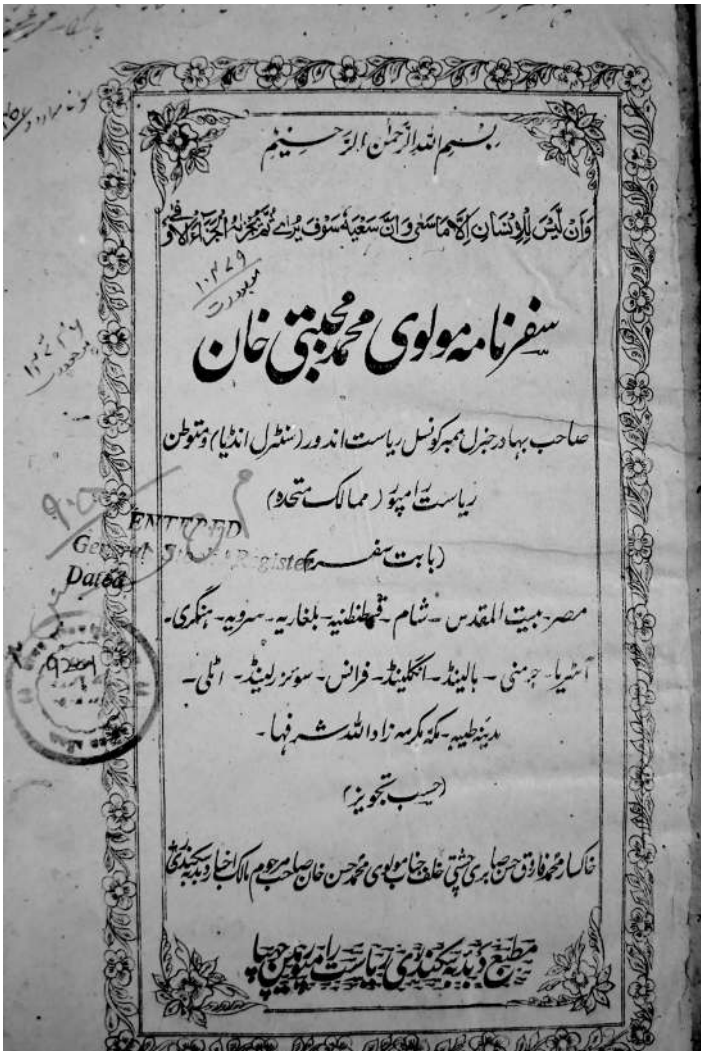 بسم اللہ الرحمن الرحیم
وَاَنْ لَّیْسَ لِلْاِنْسَانِ اِلَّا مَا سَعٰی وَاَنَّ سَعْیَهٗ سَوْفَ یُرٰے ثُمَّ یُجْزٰىهُ الْجَزَآءَ الْاَوْفٰی
۱۰۳۷۹
سفرنامہ مولوی محمد مجتبیٰ خان
صاحب بہادر جنرل ممبر کونسل ریاست اندور (سنٹرل انڈیا) و متوطن
ریاست رامپور (ممالک متحدہ)
ENTERED
General Register
Dated
(بابت سفر)
مصر۔ بیت المقدس۔ شام۔ قسطنطنیہ۔ بلغاریہ۔ سرویہ۔ ہنگری۔
آسٹریا۔ جرمنی۔ ہالینڈ۔ انگلینڈ۔ فرانس۔ سوئزرلینڈ۔ اٹلی۔
مدینہ طیبہ۔ مکہ مکرمہ زاد اللہ شرفہا۔
(حسب تجویز)
خاکسار محمد فاروق حسن صابری چشتی خلف جناب مولوی محمد حسن خان صاحب مرحوم مالک اخبار دبدبہ سکندری
مطبع دبدبہ سکندری ریاست رامپور مین چھپا